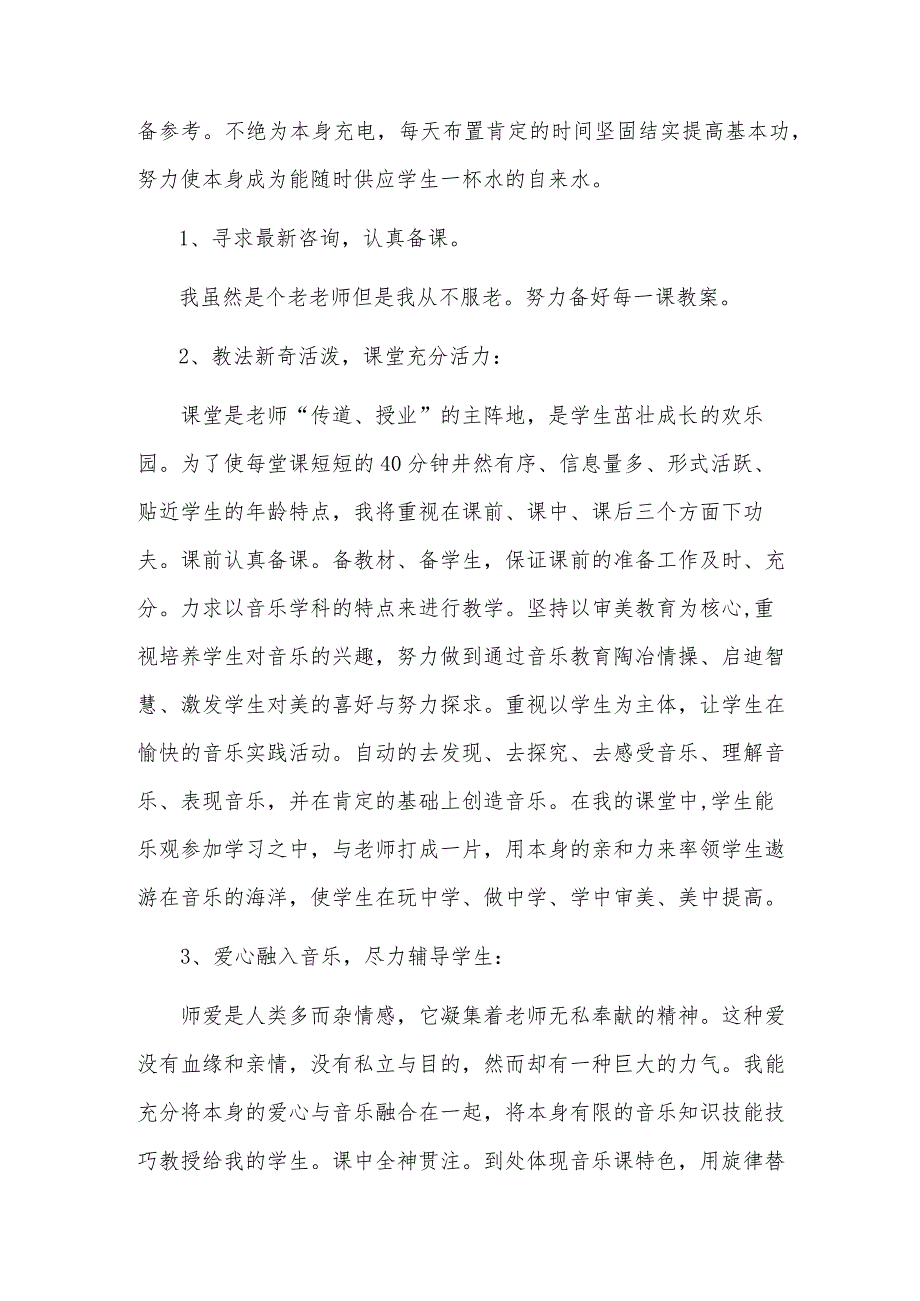 备参考。不绝为本身充电，每天布置肯定的时间坚固结实提高基本功，
努力使本身成为能随时供应学生一杯水的自来水。
1、寻求最新咨询，认真备课。
我虽然是个老老师但是我从不服老。努力备好每一课教案。
2、教法新奇活泼，课堂充分活力：
课堂是老师“传道、授业”的主阵地，是学生茁壮成长的欢乐
园。为了使每堂课短短的40分钟井然有序、信息量多、形式活跃、
贴近学生的年龄特点，我将重视在课前、课中、课后三个方面下功
夫。课前认真备课。备教材、备学生，保证课前的准备工作及时、充
分。力求以音乐学科的特点来进行教学。坚持以审美教育为核心,重
视培养学生对音乐的兴趣，努力做到通过音乐教育陶冶情操、启迪智
慧、激发学生对美的喜好与努力探求。重视以学生为主体，让学生在
愉快的音乐实践活动。自动的去发现、去探究、去感受音乐、理解音
乐、表现音乐，并在肯定的基础上创造音乐。在我的课堂中,学生能
乐观参加学习之中，与老师打成一片，用本身的亲和力来率领学生遨
游在音乐的海洋，使学生在玩中学、做中学、学中审美、美中提高。
3、爱心融入音乐，尽力辅导学生：
师爱是人类多而杂情感，它凝集着老师无私奉献的精神。这种爱
没有血缘和亲情，没有私立与目的，然而却有一种巨大的力气。我能
充分将本身的爱心与音乐融合在一起，将本身有限的音乐知识技能技
巧教授给我的学生。课中全神贯注。到处体现音乐课特色，用旋律替